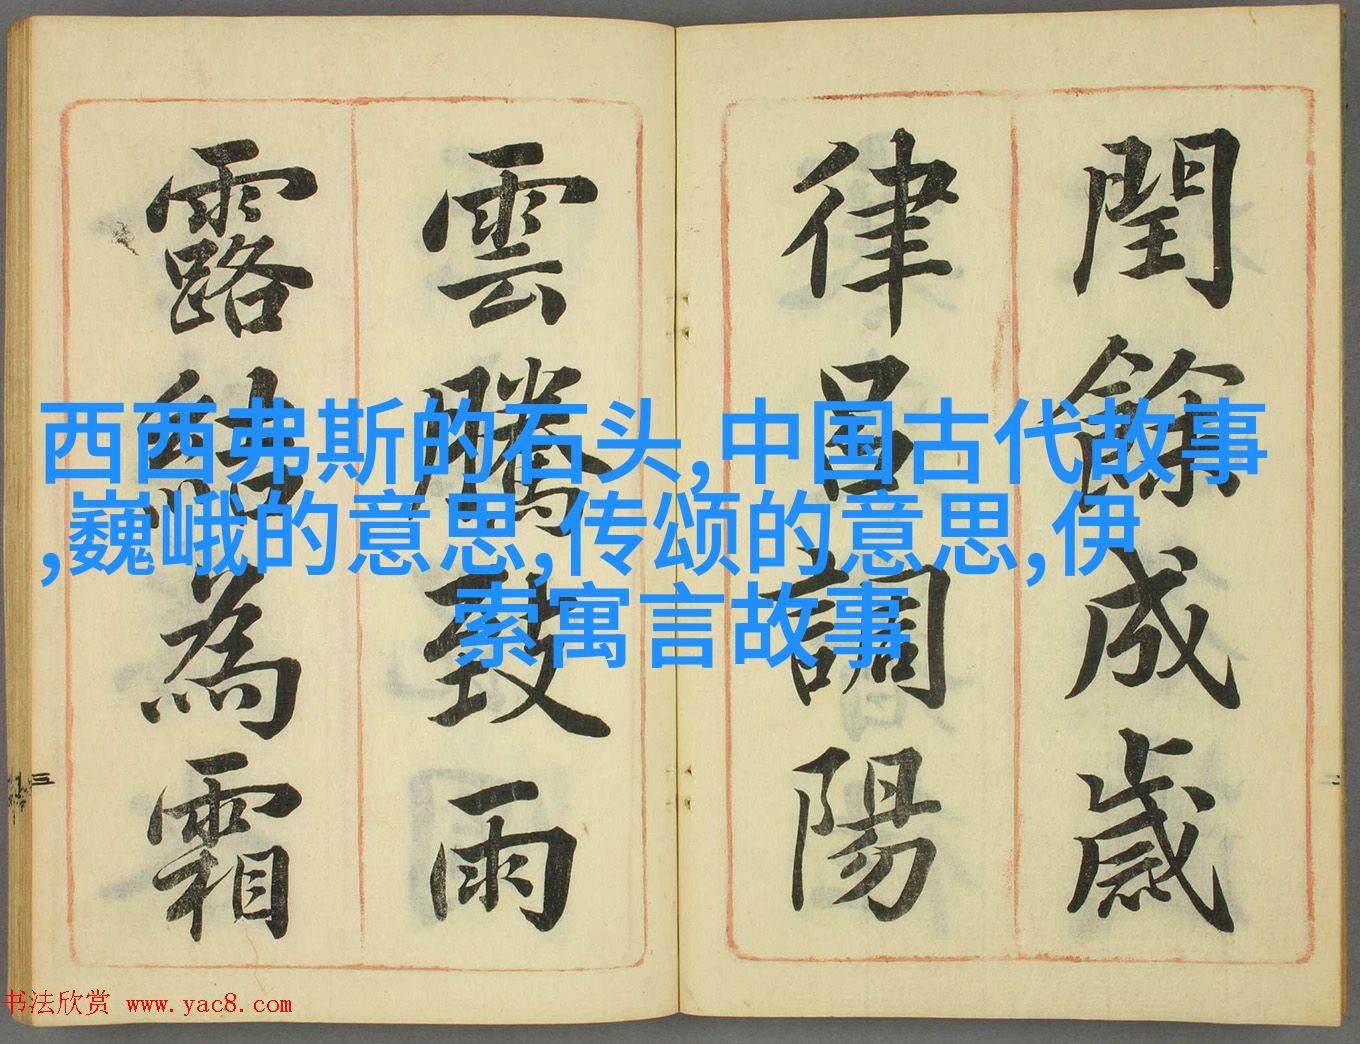 閏餘成歲
律呂調陽
雲騰致雨
露結為霜
西西弗斯的石头,中国古代故事
,巍峨的意思,传颂的意思,伊
索寓言故事
三
书法欣赏 www.yac8.com